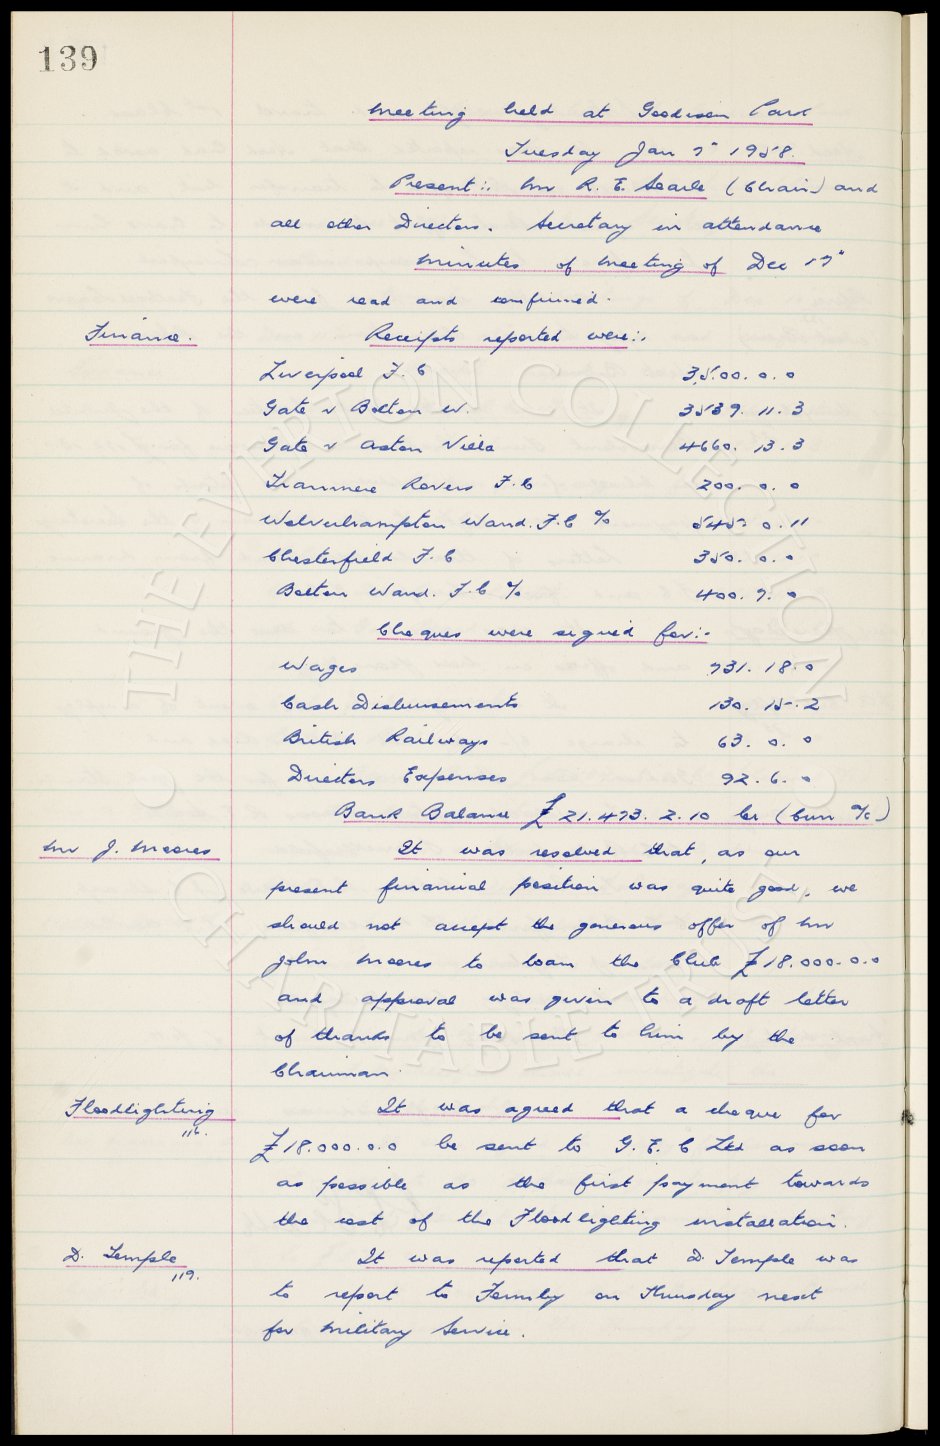 139
Meeting held at Goodison Park
Tuesday Jan 7" 1958.
Present:: Mr R. E. Searle (Chair) and
all other Directors. Secretary in attendance
Minutes of Meeting of Dec 17"
were read and confirmed.
Finance. Receipts reported were:.
Liverpool F.C 3,500. 0. 0
Gate v Bolton W. 3539. 11. 3
Gate v Aston Villa 4660. 13. 3
Tranmere Rovers F.C 200. 0. 0
Wolverhampton Wand. F.C % 0. 11
Chesterfield F.C 350. 0. 0
Bolton Wand. F.C % 400. 7. 0
Cheques were signed for:-
Wages 731. 18. 0
Cash Disbursements 130. 15. 2
British Railways 63. 0. 0
Directors Expenses 92. 6. 0
Bank Balance £21.473. 2. 10 Cr (Curr %)
Mr J. Moores It was resolved that, as our
present financial position was quite good, we
should not accept the generous offer of Mr
John Moores to loan the Club £18.000.0.0
and approval was given to a draft letter
of thanks to be sent to him by the
Chairman.
Floodlighting It was agreed that a cheque for
116.
£18.000.0.0 be sent to G.E.C Ltd as soon
as possible as the first payment towards
the cost of the Floodlighting installation.
D. Temple It was reported that D. Temple was
119.
to report to Formby on Thursday next
for Military Service.
THE EVERTON COLLECTION
CHARITABLE TRUST